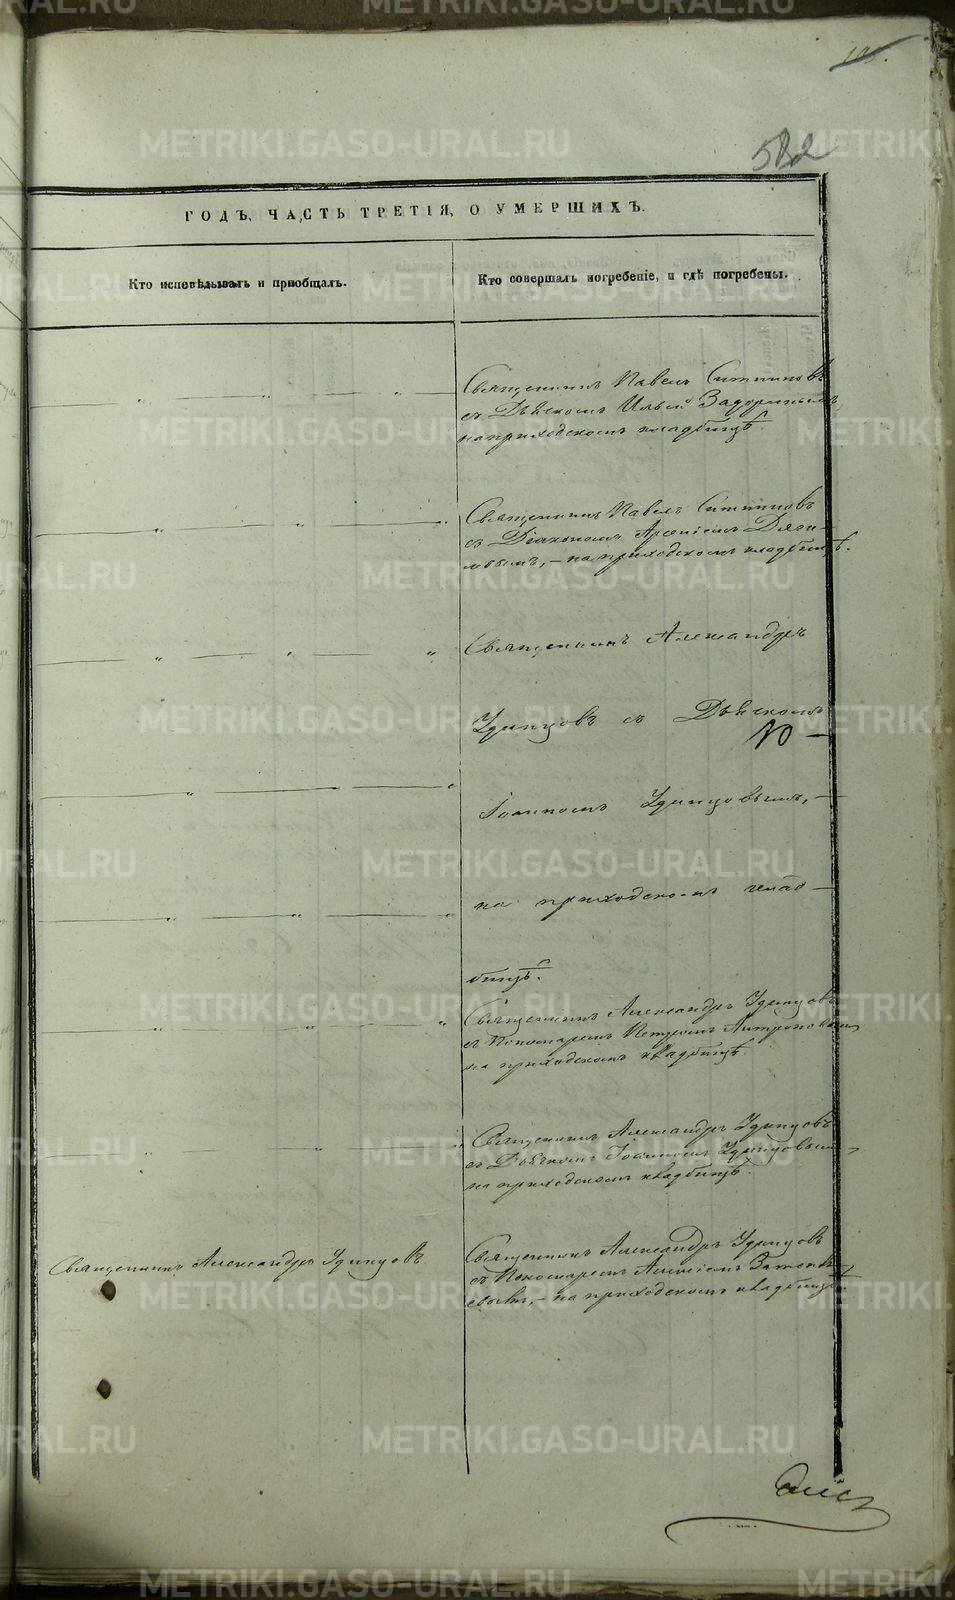 582
ГОДЪ, ЧАСТЬ ТРЕТІЯ, О УМЕРШИХЪ.
Кто исповѣдывалъ и пріобщалъ.
Кто совершалъ погребеніе, и гдѣ погребены.
Священникъ Павелъ Ситниковъ
съ Дьячкомъ Ильей Задоринымъ
на приходскомъ кладбищѣ.
Священникъ Павелъ Ситниковъ
съ Діякономъ Арсеніемъ Дяги-
левымъ, - на приходскомъ кладбищѣ.
Священникъ Александръ
Удинцовъ съ Дьячкомъ
Іоанномъ Удинцовымъ, -
на приходскомъ клад-
бищѣ.
Священникъ Александръ Удинцовъ
съ Пономаремъ Петромъ Антроповымъ
на приходскомъ кладбищѣ.
Священникъ Александръ Удинцовъ
съ Дьячкомъ Іоанномъ Удинцовымъ,
на приходскомъ кладбищѣ.
Священникъ Александръ Удинцовъ
Священникъ Александръ Удинцовъ
съ Пономаремъ Алексіемъ
на приходскомъ кладбищѣ
METRIKI.GASO-URAL.RU